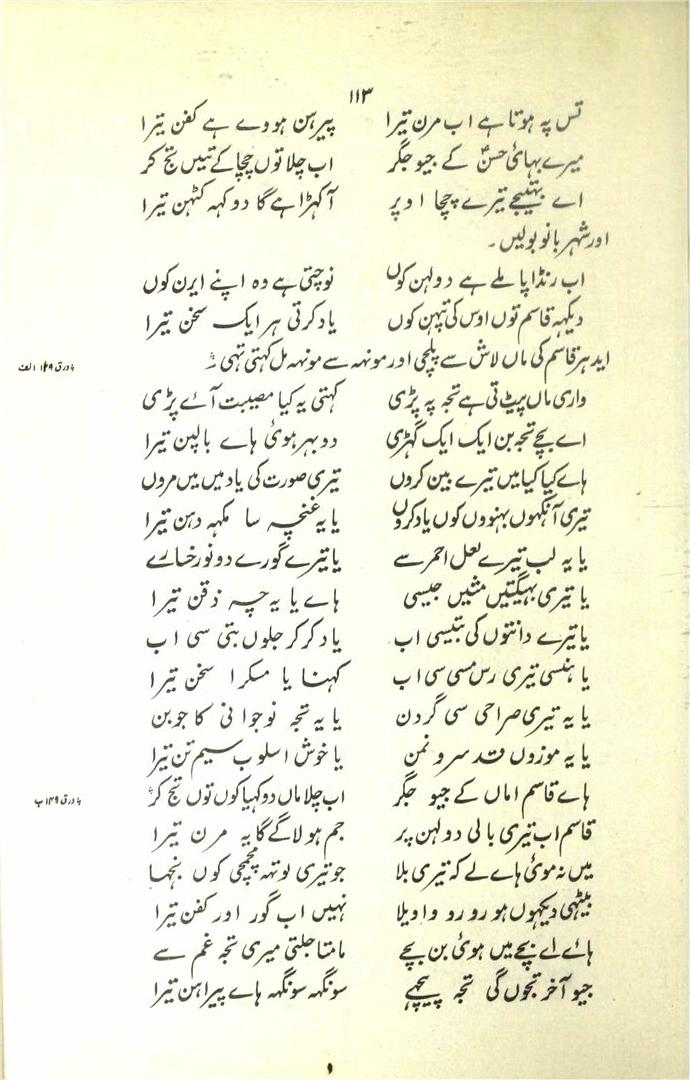 ۱۱۳
تس پہ ہوتا ہے اب مرن تیرا پیرہن ہووے ہے کفن تیرا
میرے بہائی حسنؑ کے جیو جگر اب چلا توں چچا کے تئیں تج کر
اے بہتیجے تیرے چچا اوپر آ کہڑا ہے گا دوکہہ کٹہن تیرا
اور شہر بانو بولیں۔
اب رنڈاپا ملے ہے دولہن کوں نوچتی ہے وہ اپنے ابرن کوں
دیکہہ قاسم توں اوس کی تپہن کوں یاد کرتی ہر ایک سخن تیرا
ایدہر قاسم کی ماں لاش سے پلچی اور مونہہ سے مونہہ مل کہتی تہی۔
ورق ۱۴۹ الف
واری ماں پیٹ تی ہے تجہ پہ پڑی کہتی یہ کیا مصیبت آئے پڑی
اے بچے تجہ بن ایک ایک گہڑی دوبہر ہوئی ہاے بالپن تیرا
ہاے کیا کیا میں تیرے بین کروں تیری صورت کی یاد میں میں مروں
تیری آنکہوں بہنووں کوں یاد کروں یا یہ غنچہ سا مکہہ دہن تیرا
یا یہ لب تیرے لعل احمر سے یا تیرے گورے دونو رخسارے
یا تیری بہیگتیں مشیں جیسی ہاے یا یہ چہ ذقن تیرا
یا تیرے دانتوں کی بتیسی اب یاد کر کر جلوں بتی سی اب
یا ہنسی تیری رس مسی سی اب کہنا یا مسکرا سخن تیرا
یا یہ تیری صراحی سی گردن یا یہ تجہ نوجوانی کا جوبن
یا یہ موزوں قد سرو نمن یا خوش اسلوب سیم تن تیرا
ہاے قاسم اماں کے جیو جگر اب چلا ماں دوکہیا کوں توں تج کر
ورق ۱۴۹ ب
قاسم اب تیری بالی دولہن پر جم ہو لاگے گا یہ مرن تیرا
میں نہ موئی ہاے لے کہ تیری بلا جو تیری لوتہہ مجھی کوں بنجہا
بیٹہی دیکہوں ہو رو رو واویلا نہیں اب گور اور کفن تیرا
ہاے اے بچے میں ہوئی بن بچے مامتا جلتی میری تجہ غم سے
جیو آخر تجوں گی تجہ پیچہے سونگہہ سونگہہ ہاے پیراہن تیرا